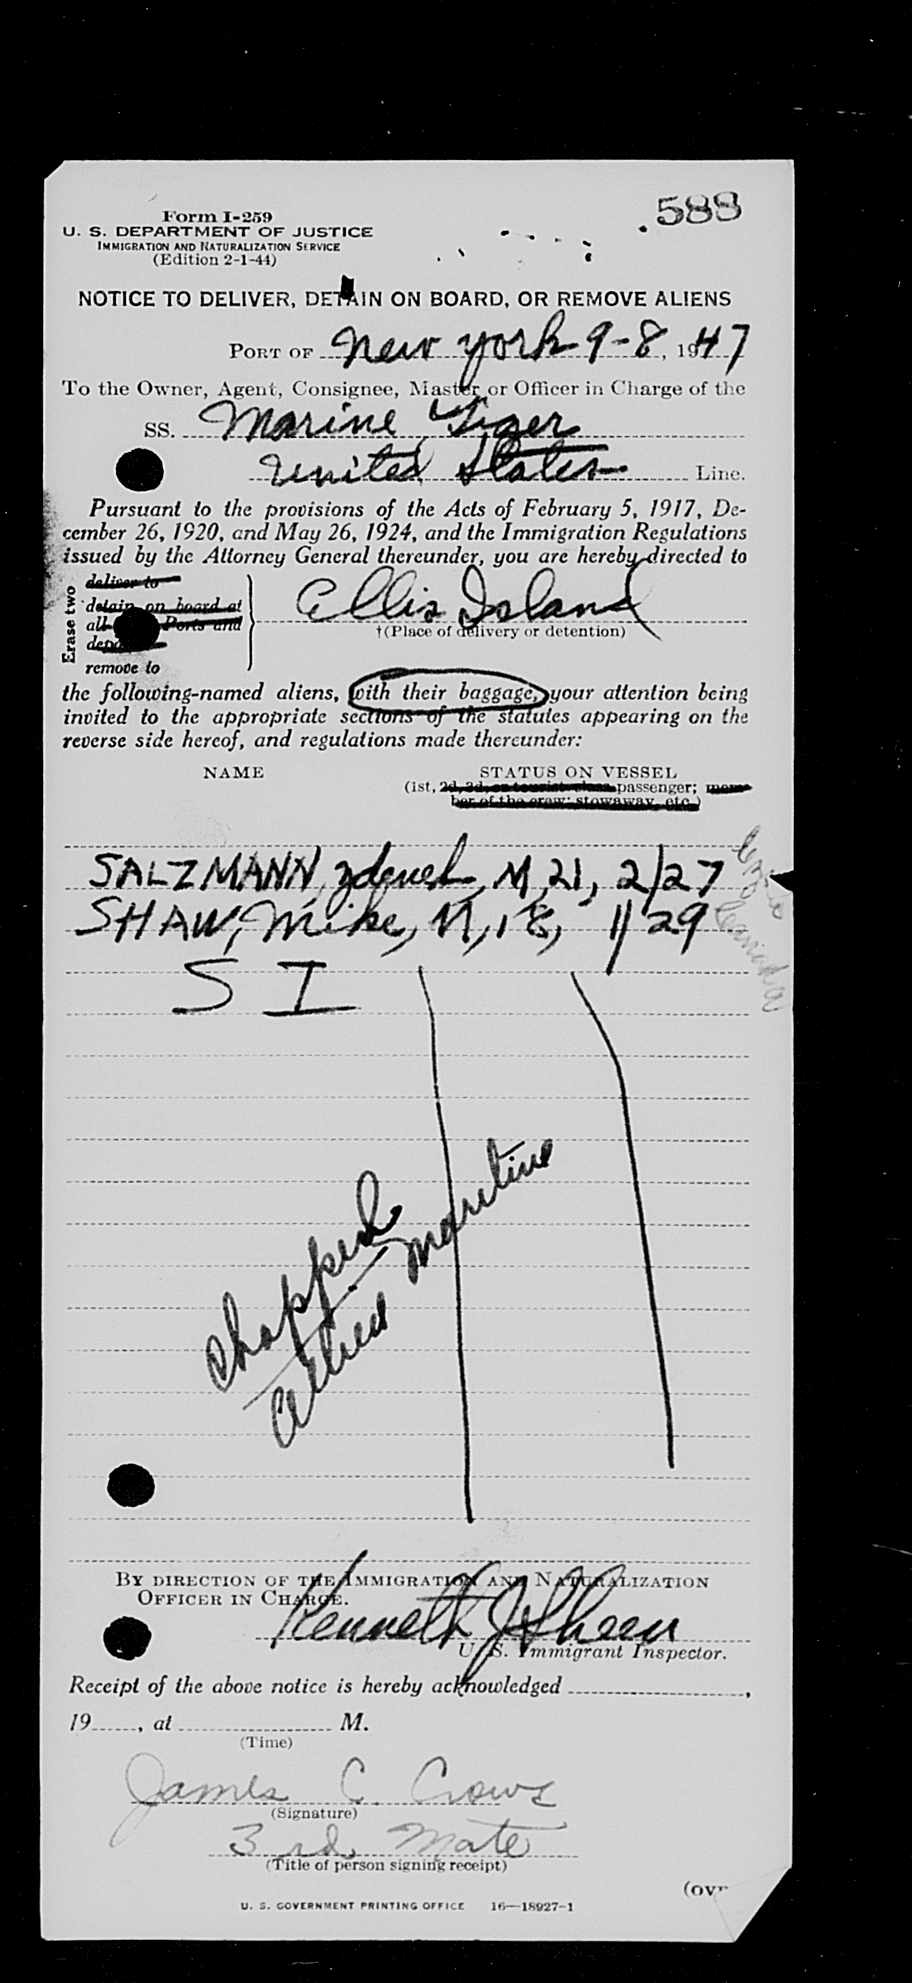 588
Form I-259
U. S. DEPARTMENT OF JUSTICE
IMMIGRATION AND NATURALIZATION SERVICE
(Edition 2-1-44)
NOTICE TO DELIVER, DETAIN ON BOARD, OR REMOVE ALIENS
PORT OF New York 9-8, 1947
To the Owner, Agent, Consignee, Master or Officer in Charge of the
SS. Marine Tiger
United States Line.
Pursuant to the provisions of the Acts of February 5, 1917, De-
cember 26, 1920, and May 26, 1924, and the Immigration Regulations
issued by the Attorney General thereunder, you are hereby directed to
Erase two
deliver to
detain on board at
all Ports and
remove to
Ellis Island
†(Place of delivery or detention)
the following-named aliens, with their baggage, your attention being
invited to the appropriate sections of the statutes appearing on the
reverse side hereof, and regulations made thereunder:
NAME STATUS ON VESSEL
(1st, 2d, 3d, or tourist class passenger; mem-
ber of the crew; stowaway, etc.)
SALZMANN, Zdenek, M, 21, 2/27
SHAW, Mike, M, 18, 1/29
Canada
S I
Allied Maritine
BY DIRECTION OF THE IMMIGRATION AND NATURALIZATION
OFFICER IN CHARGE.
Kenneth J Sheen
U. S. Immigrant Inspector.
Receipt of the above notice is hereby acknowledged ,
19 , at M.
(Time)
James C. Crows
(Signature)
3rd Mate
(Title of person signing receipt)
(ov
U. S. GOVERNMENT PRINTING OFFICE 16—18927-1